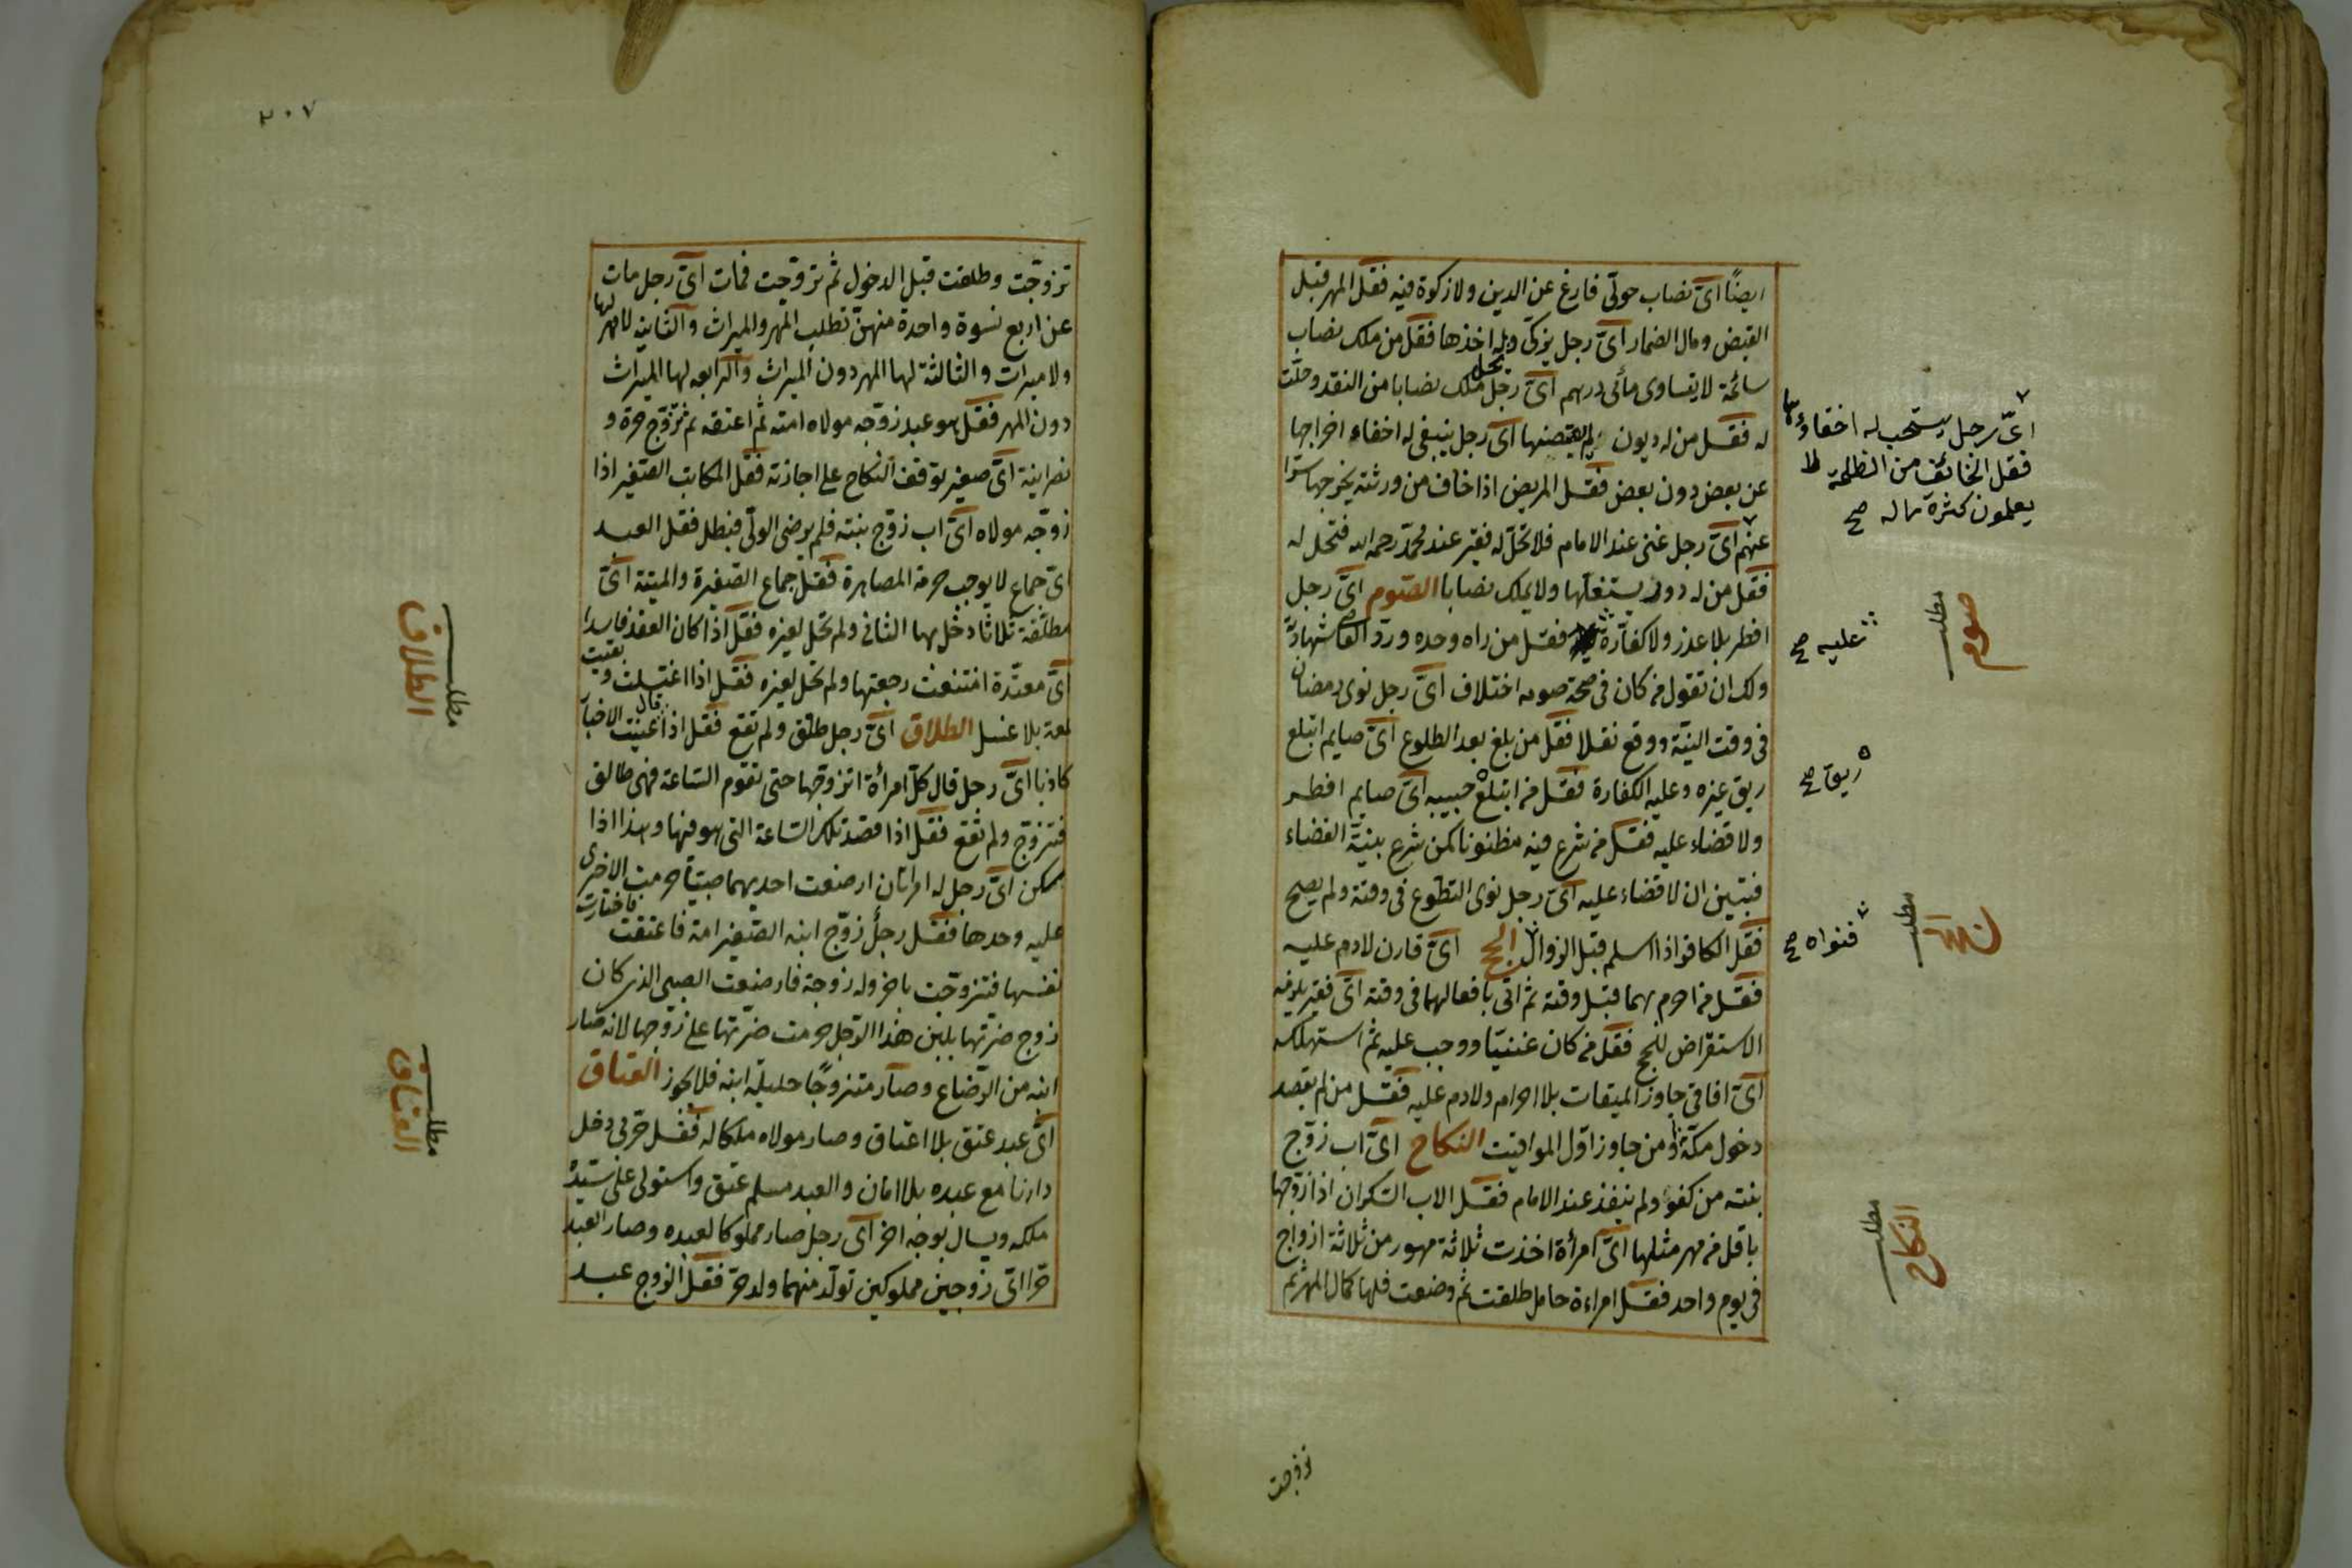 ايضًا اىّ نصاب حولىّ فارغ عن الدين ولا زكوة فيه فقل المهر قبل
القبض ومال الضمار اىّ رجل يزكى وله اخذها فقل من ملك نصاب
سائمة لا يتساوى مأتى درهم اىّ رجل ملك نصابا من النقد وحلّت
له فقل من له ديون لم يقبضها اىّ رجل ينبغى له اخفاء اخراجها
عن بعض دون بعض فقل المريض اذا خاف من ورثته يخرجها سرّا
عنهم اىّ رجل غنى عند الامام فلا تحلّ له فقير عند محمّد رحمه الله فتحل له
فقل من له دور يستغلها ولا يملك نصابا الصّوم اىّ رجل
افطر بلا عذر ولا كفاّرة فقل من راه وحده وردّ القاضى شهادته
ولك ان تقول من كان فى صحة صومه اختلاف اىّ رجل نوى رمضان
فى وقت النيّة ووقع نفلا فقل من بلغ بعد الطلوع اىّ صايم ابتلع
ريق غيره وعليه الكفارة فقل من ابتلع حبيبه اىّ صايم افطر
ولا قضاء عليه فقل من شرع فيه مظنونا كمن شرع بنيّة القضاء
فتبين ان لا قضاء عليه اىّ رجل نوى التطوع فى وقته ولم يصح
فقل الكافر اذا اسلم قبل الزوال الحج اىّ قارن لا دم عليه
فقل من احرم بهما قبل وقته ثم اتى بافعالهما فى وقته اىّ فقير يلزمه
الاستقراض للحج فقل من كان غنيّا ووجب عليه ثم استهلكه
اىّ افاقى جاوز الميقات بلا احرام ولا دم عليه فقل من لم يقصد
دخول مكّة ومن جاوز اوّل المواقيت النكاح اىّ اب زوّج
بنته من كفؤ ولم ينفذ عند الامام فقل الاب السّكران اذا زوّجها
باقل من مهر مثلها اىّ امرأة اخذت ثلاثة مهور من ثلاثة ازواج
فى يوم واحد فقل امراءة حامل طلقت ثم وضعت فلها كمال المهر ثم
زوّجت
اىّ رجل يستحب له اخفاؤها
فقل الخائف من الظلمة
يعلمون كثرة ماله صح
مطلب
صوم
عليه صح
ريق صح
مطلب
فنواه صح
مطلب
النكاح
٢٠٧
تزوّجت وطلقت قبل الدخول ثم تزوّجت فمات اىّ رجل مات
عن اربع نسوة واحدة منهنّ تطلب المهر والميراث والثانية لا مهر لها
ولا ميراث والثالثة لها المهر دون الميراث والرابعه لها الميراث
دون المهر فقل هو عبد زوّجه مولاه امته ثم اعتقه ثم تزوّج حرة و
نصرانية اىّ صغير توقف النكاح على اجازته فقل المكاتب الصّغير اذا
زوّجه مولاه اىّ اب زوّج بنته فلم يرضى الولىّ فبطل فقل العبد
اىّ جماع لا يوجب حرمة المصاهرة فقل جماع الصّغيرة والميتة اىّ
مطلّقة ثلاثا دخل بها الثانى ولم تحل لغيره فقل اذا كان العقد فاسدا
اىّ معتدّة امتنعت رجعتها ولم تحل لغيره فقل اذا اغتسلت وبقيت
لمعة بلا غسل الطلاق اىّ رجل طلّق ولم تقع فقل اذا قال عنيت الاخبار
كاذبا اىّ رجل قال كلّ امرأة اتزوّجها حتى تقوم السّاعة فهى طالق
فتزوّج ولم تقع فقل اذا قصد تلك السّاعة التى هو فيها وهذا اذا
سكن اىّ رجل له امراتان ارضعت احديهما صبيّا حرمت الاخرى
عليه وحدها فقل رجل زوّج ابنه الصّغير امة فاعتقت فاختارت
نفسها فتزوّجت باخر وله زوجة فارضعت الصبى الذى كان
زوج ضرّتها بلبن هذا الرّجل حرمت ضرّتها على زوجها لانه صار
ابنه من الرّضاع وصار متزوجًا حليلة ابنه فلا يجوز العتاق
اىّ عبد عتق بلا اعتاق وصار مولاه ملكا له فقل حربى دخل
دارنا مع عبده بلا امان والعبد مسلم عتق واستولى على سيّده
ملكه ويسال بوجه اخر اىّ رجل صار مملوكا لعبده وصار العبد
حرّا اىّ زوجين مملوكين تولّد منهما ولد حرّ فقل الزوج عبد
مطلب
الطلاق
مطلب
العتاق